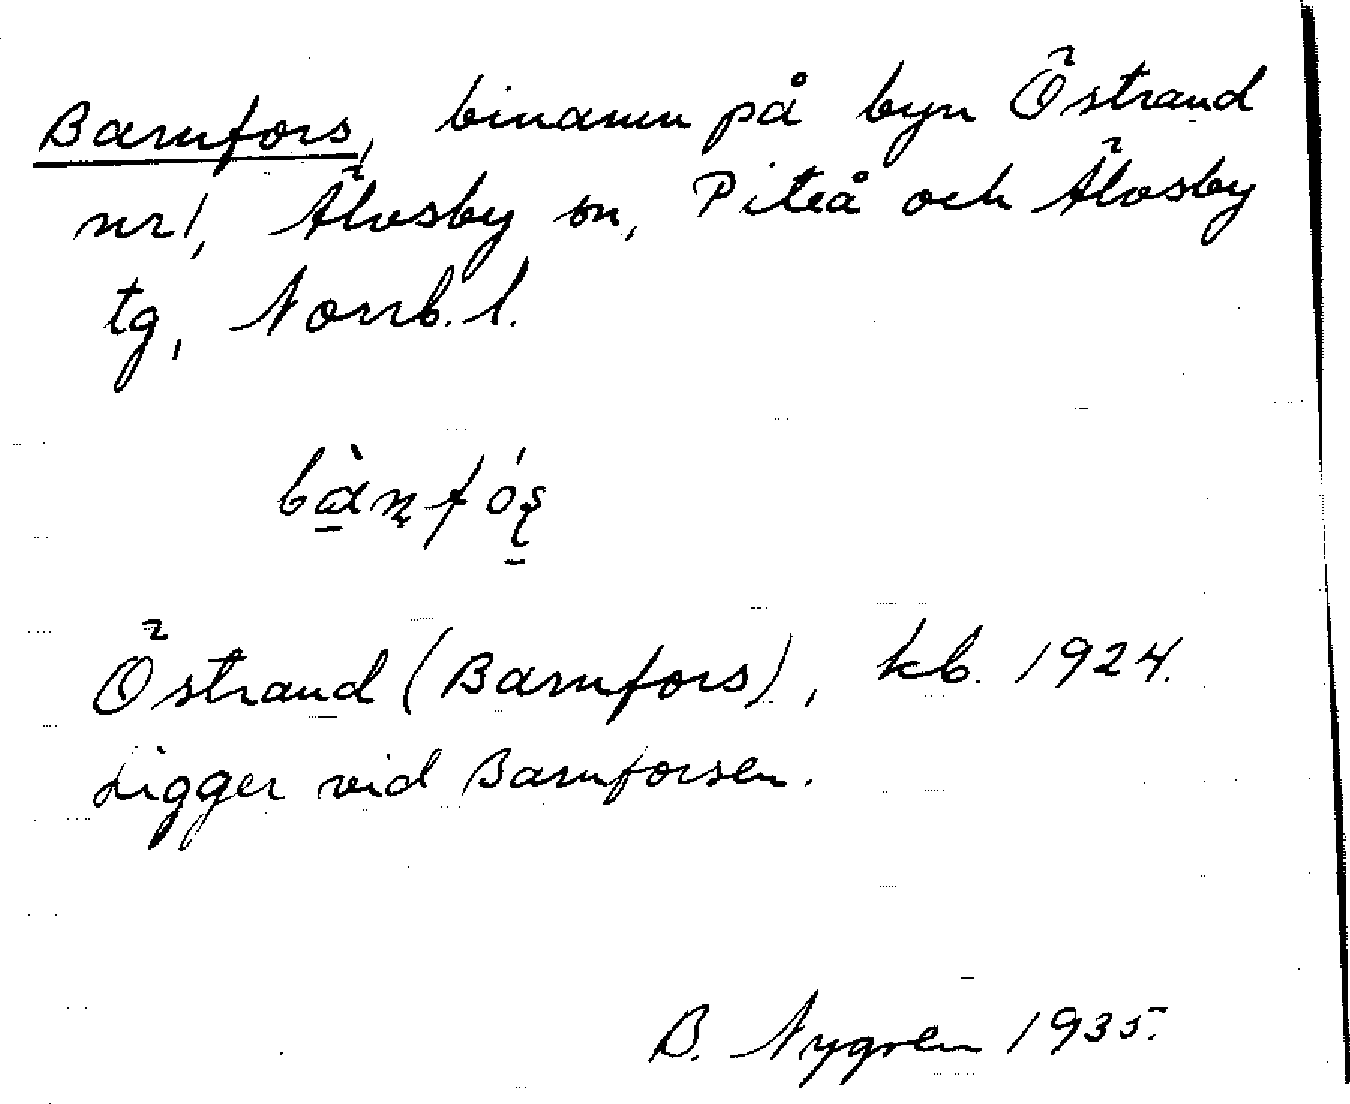 Barnfors, binamn på byn Östrand
nr 1, Älvsby sn, Piteå och Älvsby
tg, Norrb. l.
bànfós
Östrand (Barnfors), kb. 1924.
Ligger vid Barnforsen.
B. Nygren 1935.